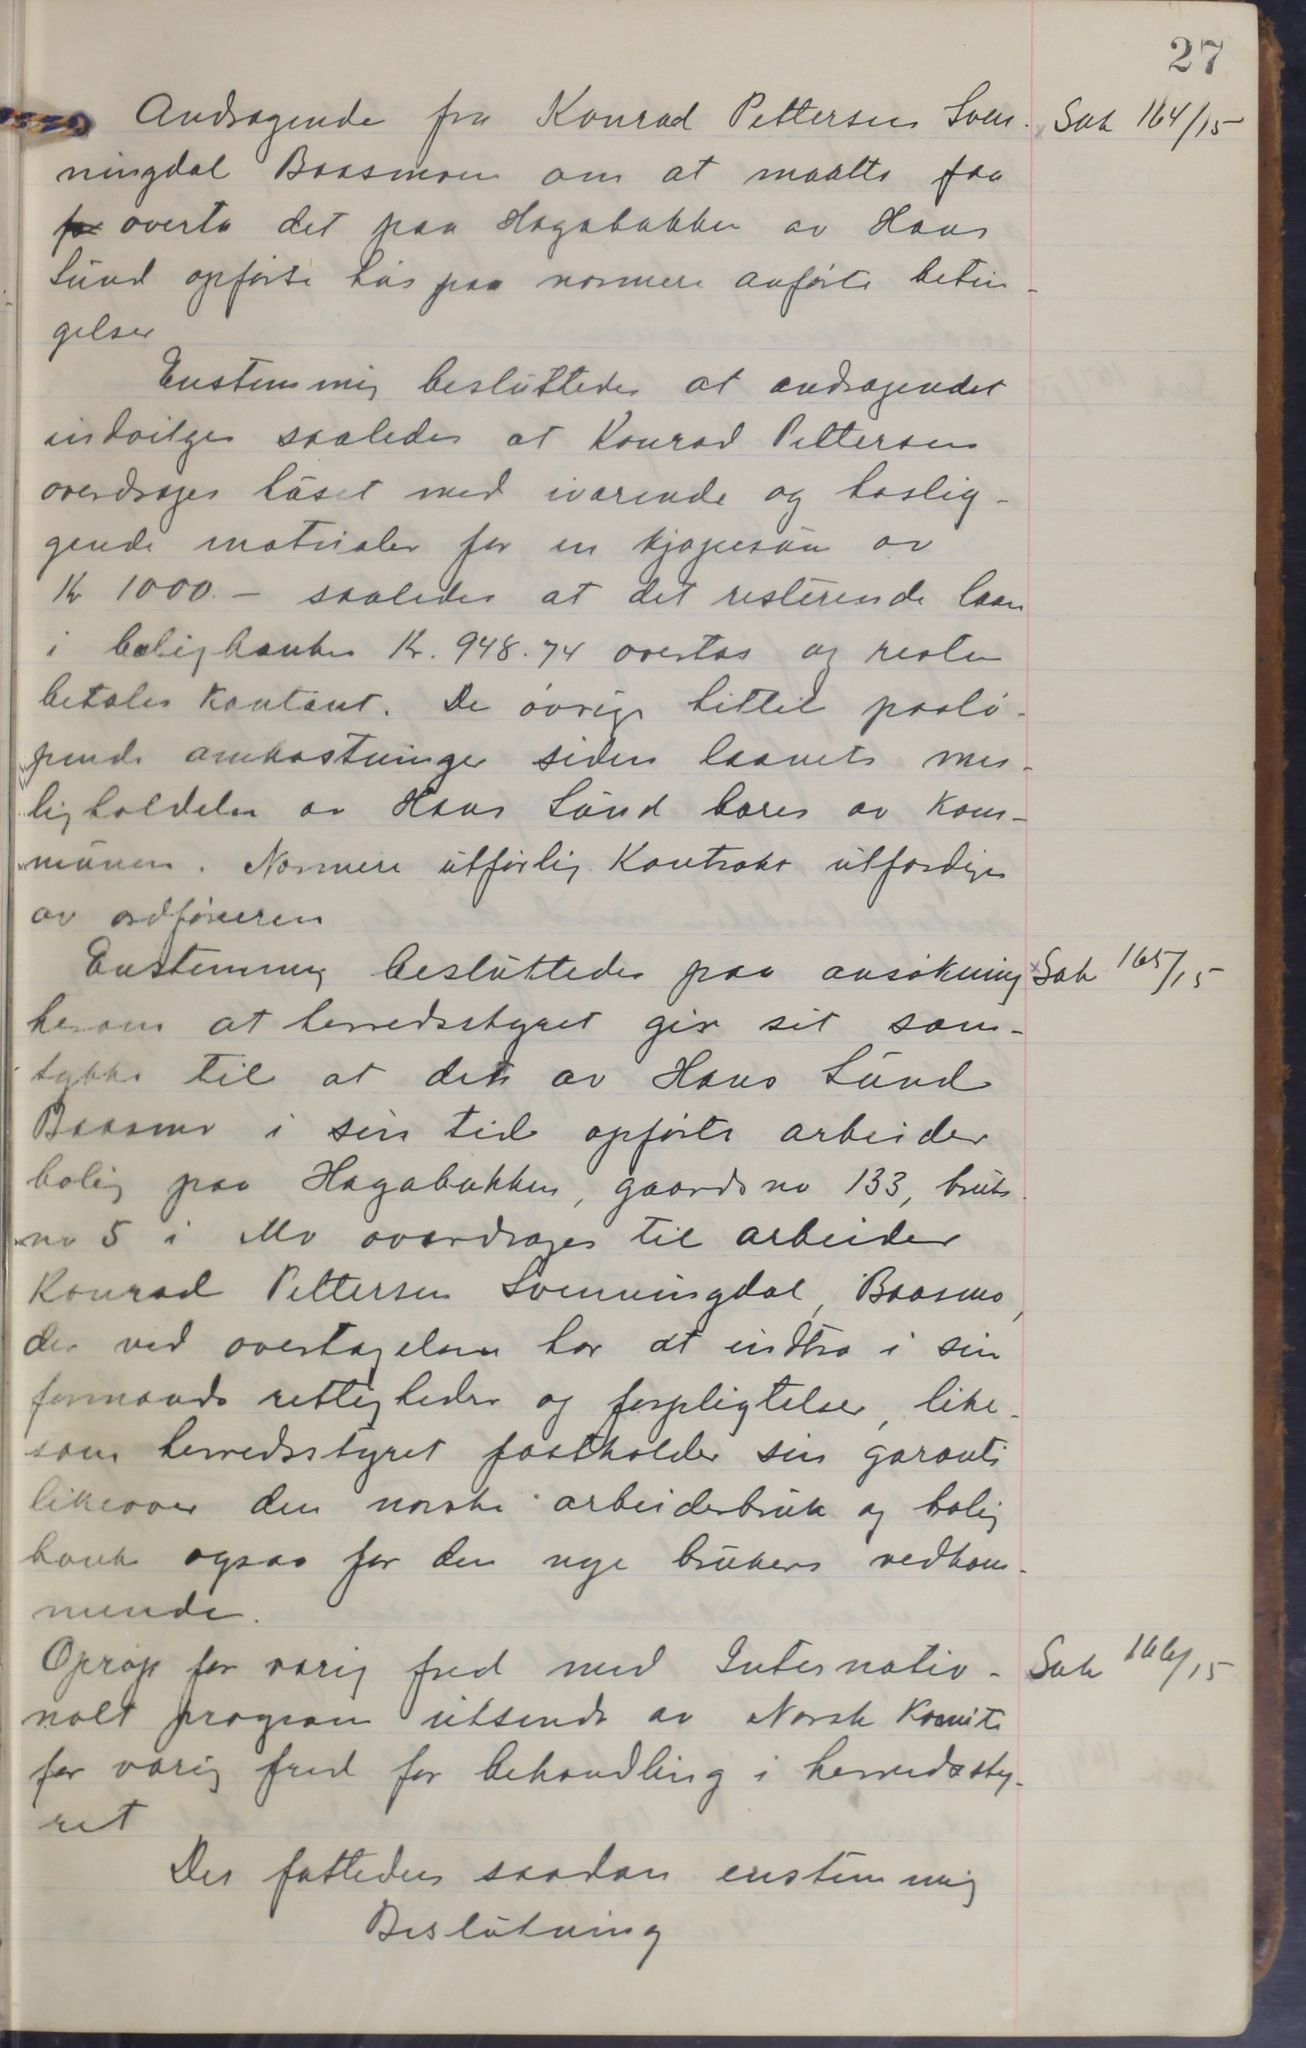 27
Andragende fra Konrad Pettersen Sven- Sak 164/15
ningdal Baasmoen om at maatte faa
overta det paa Hagabakken av Hans
Lund opførte hus paa nærmere anførte betin-
gelser
Enstemmig besluttedes at andragendet
indvilges saaledes at Konrad Pettersen
overdrages huset med ivarende og hoslig-
gende materialer for en kjøpesum av
Kr 1000.- saaledes at det resterende laan
i boligbanken Kr. 948.74 overtas og resten
betales kontant. De øvrige hittil paalø-
pende omkostninger siden laanets mis-
ligholdelse av Hans Lund bæres av kom-
munen. Nærmere utførlig kontrakt utfærdiges
av ordføreren
Enstemmig besluttedes paa ansøkning Sak 165/15
herom at herredsstyret gir sit sam-
tykke til at det av Hans Lund
Baasmo i sin tid opførte arbeider
bolig paa Hagabakken, gaards no 133, bruks
no 5 i Mo overdrages til arbeider
Konrad Pettersen Svenningdal, Baasmo,
der ved overtagelsen har at indtræ i sin
formands rettigheder og forpligtelser, like-
som herredsstyret fastholder sin garanti
likeover den norske arbeiderbruk og bolig
bank ogsaa for den nye brukers vedkom-
mende.
Oprop for varig fred med Internatio- Sak 166/15
nalt program utsendt av Norsk Komite
for varig fred for behandling i herredssty-
ret
Der fattedes saadan enstemmig
Beslutning